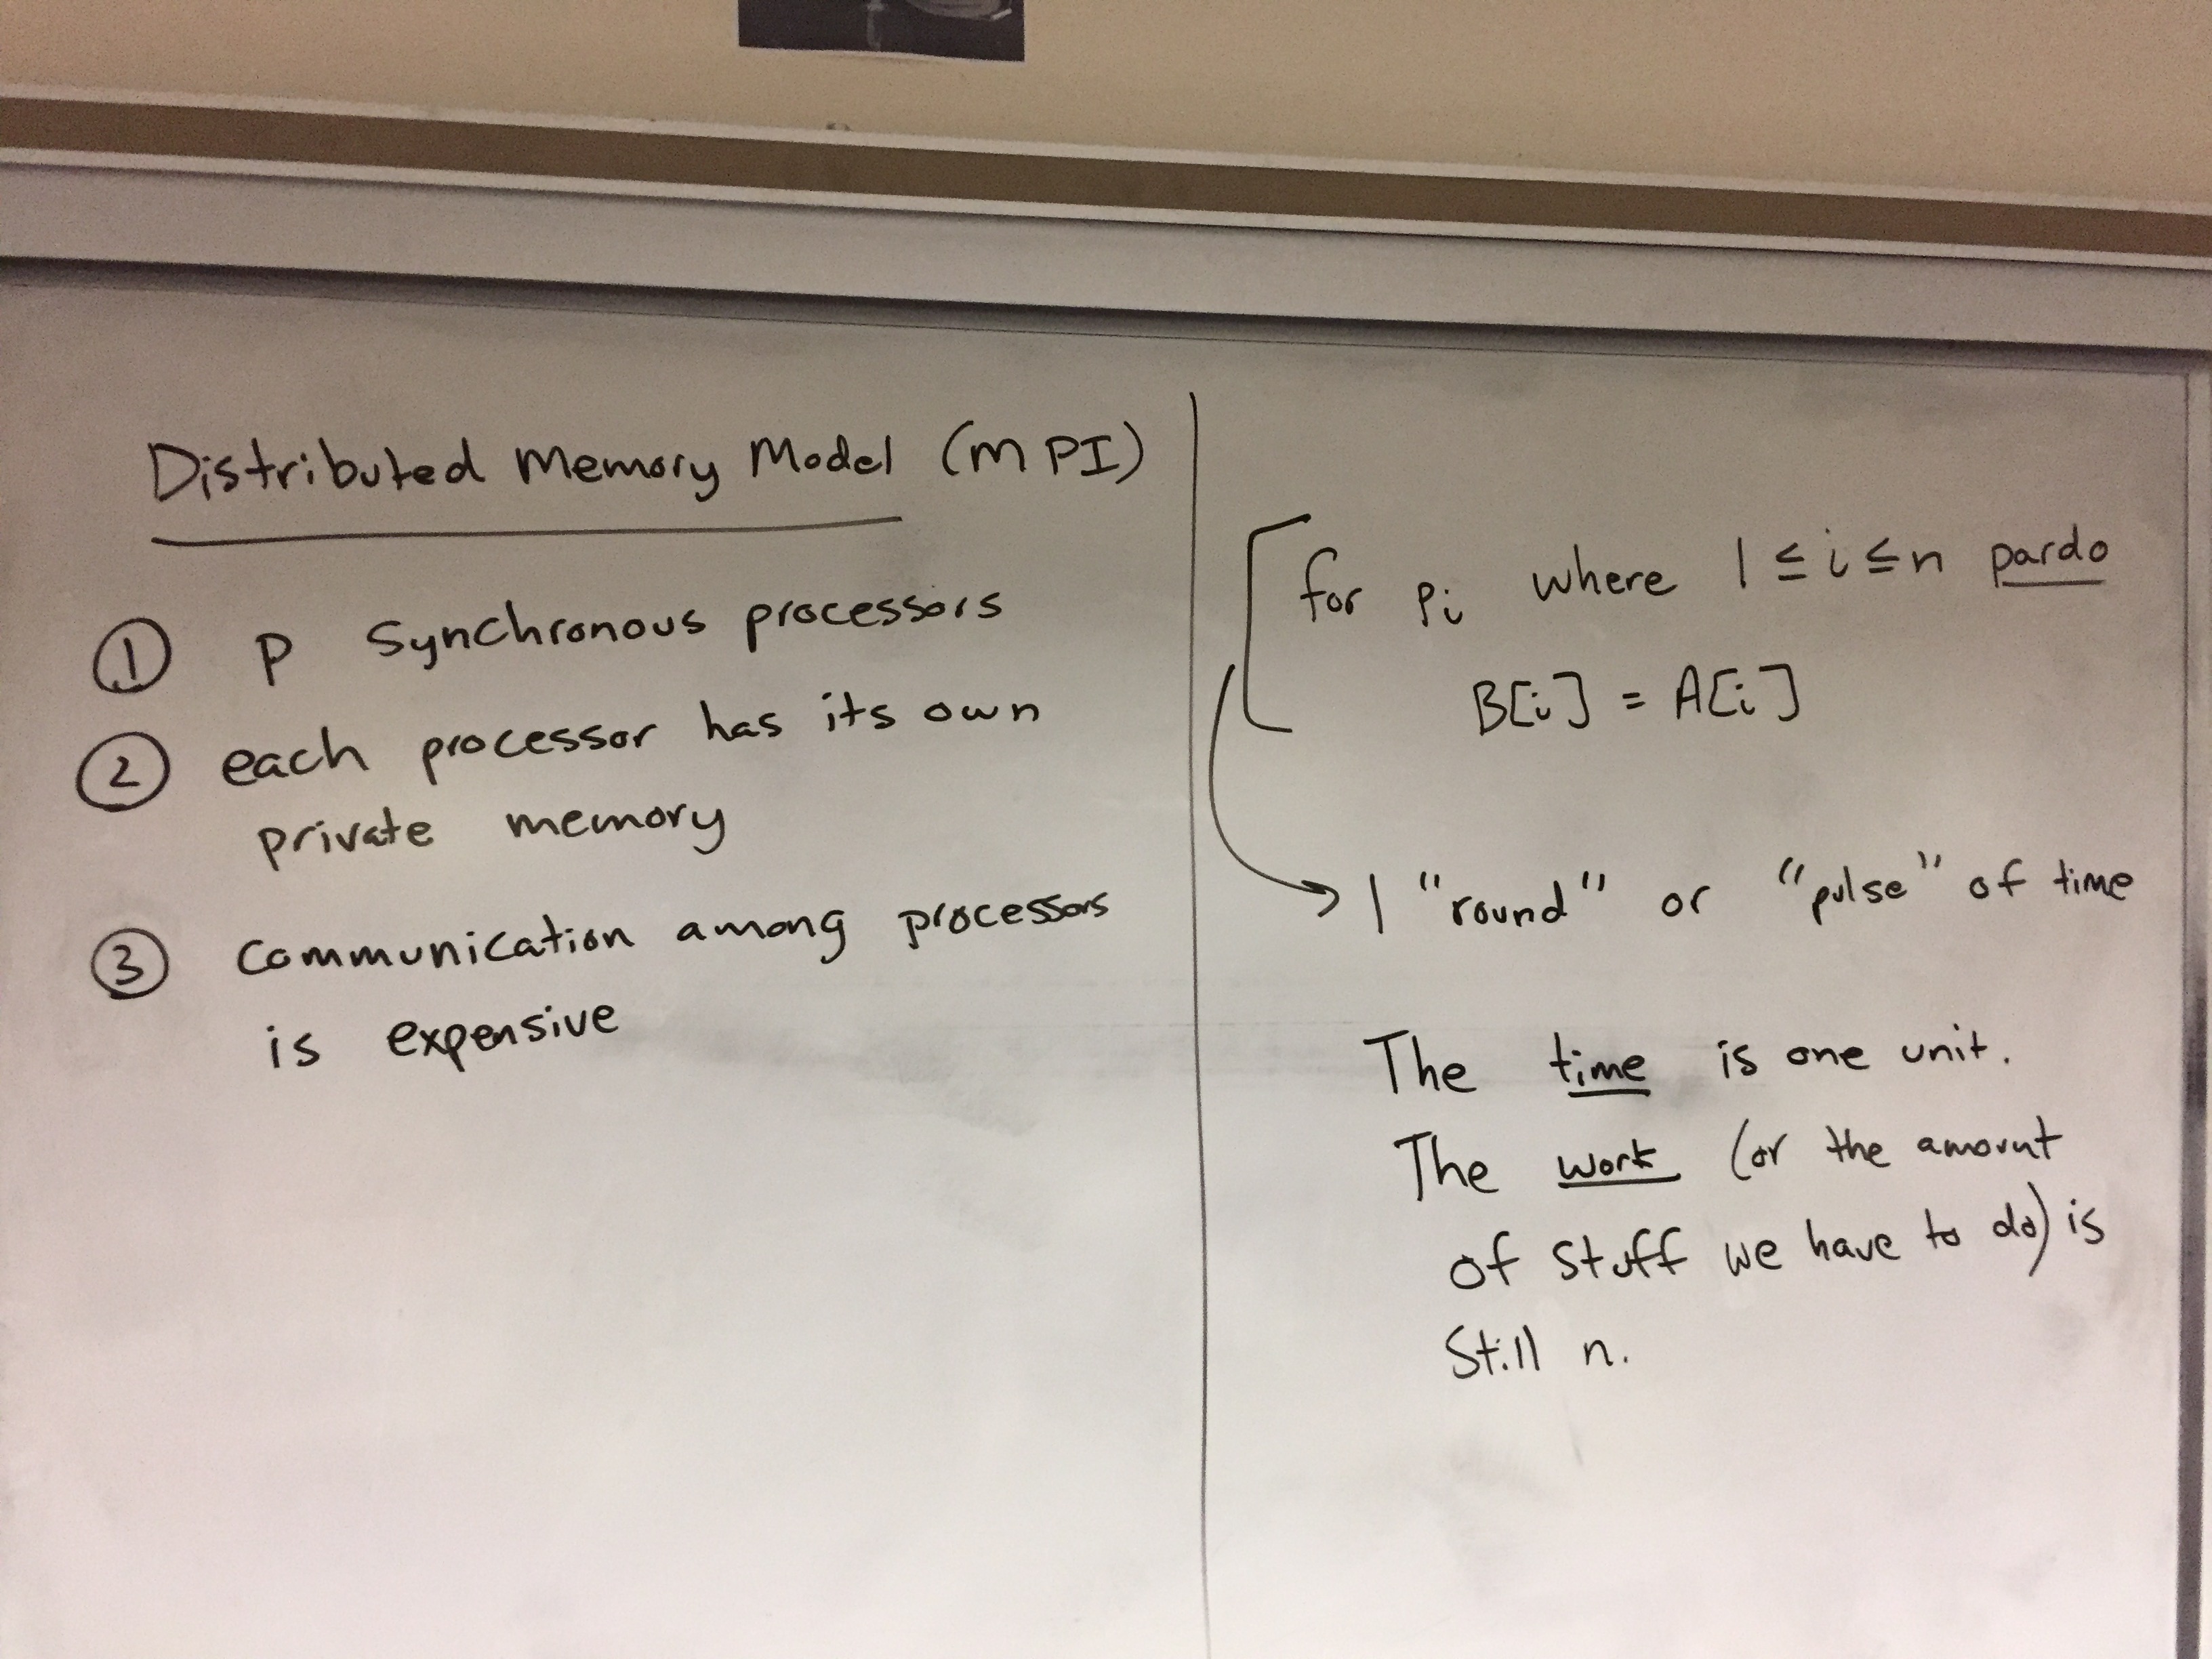 Distributed Memory Model (MPI)
① P Synchronous processors
② each processor has its own
private memory
③ communication among processors
is expensive
for Pi where 1 ≤ i ≤ n pardo
B[i] = A[i]
1 "round" or "pulse" of time
The time is one unit.
The work (or the amount
of stuff we have to do) is
Still n.